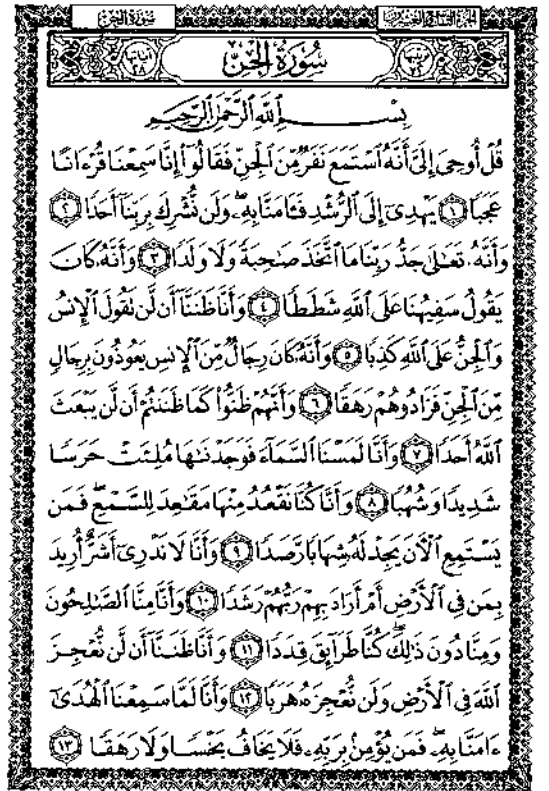 سُورَةُ الجِنِّ الجُزْءُ التَّاسِعُ وَالعِشْرُونَ
آيَاتُهَا ٢٨ سُورَةُ الجِنِّ
بِسْمِ ٱللَّهِ ٱلرَّحْمَٰنِ ٱلرَّحِيمِ
قُلْ أُوحِيَ إِلَيَّ أَنَّهُ ٱسْتَمَعَ نَفَرٌ مِّنَ ٱلْجِنِّ فَقَالُوٓا۟ إِنَّا سَمِعْنَا قُرْءَانًا
عَجَبًا ١ يَهْدِىٓ إِلَى ٱلرُّشْدِ فَـَٔامَنَّا بِهِۦ ۖ وَلَن نُّشْرِكَ بِرَبِّنَآ أَحَدًا ٢
وَأَنَّهُۥ تَعَٰلَىٰ جَدُّ رَبِّنَا مَا ٱتَّخَذَ صَٰحِبَةً وَلَا وَلَدًا ٣ وَأَنَّهُۥ كَانَ
يَقُولُ سَفِيهُنَا عَلَى ٱللَّهِ شَطَطًا ٤ وَأَنَّا ظَنَنَّآ أَن لَّن نَّقُولَ ٱلْإِنسُ
وَٱلْجِنُّ عَلَى ٱللَّهِ كَذِبًا ٥ وَأَنَّهُۥ كَانَ رِجَالٌ مِّنَ ٱلْإِنسِ يَعُوذُونَ بِرِجَالٍ
مِّنَ ٱلْجِنِّ فَزَادُوهُمْ رَهَقًا ٦ وَأَنَّهُمْ ظَنُّوا۟ كَمَا ظَنَنتُمْ أَن لَّن يَبْعَثَ
ٱللَّهُ أَحَدًا ٧ وَأَنَّا لَمَسْنَا ٱلسَّمَآءَ فَوَجَدْنَٰهَا مُلِئَتْ حَرَسًا
شَدِيدًا وَشُهُبًا ٨ وَأَنَّا كُنَّا نَقْعُدُ مِنْهَا مَقَٰعِدَ لِلسَّمْعِ ۖ فَمَن
يَسْتَمِعِ ٱلْءَانَ يَجِدْ لَهُۥ شِهَابًا رَّصَدًا ٩ وَأَنَّا لَا نَدْرِىٓ أَشَرٌّ أُرِيدَ
بِمَن فِى ٱلْأَرْضِ أَمْ أَرَادَ بِهِمْ رَبُّهُمْ رَشَدًا ١٠ وَأَنَّا مِنَّا ٱلصَّٰلِحُونَ
وَمِنَّا دُونَ ذَٰلِكَ ۖ كُنَّا طَرَآئِقَ قِدَدًا ١١ وَأَنَّا ظَنَنَّآ أَن لَّن نُّعْجِزَ
ٱللَّهَ فِى ٱلْأَرْضِ وَلَن نُّعْجِزَهُۥ هَرَبًا ١٢ وَأَنَّا لَمَّا سَمِعْنَا ٱلْهُدَىٰٓ
ءَامَنَّا بِهِۦ ۖ فَمَن يُؤْمِنۢ بِرَبِّهِۦ فَلَا يَخَافُ بَخْسًا وَلَا رَهَقًا ١٣